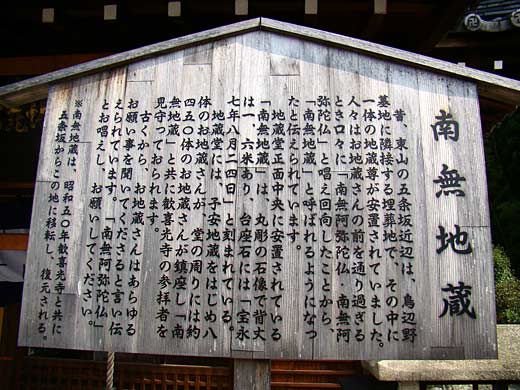 南無地蔵
昔、東山の五条坂近辺は、鳥辺野
墓地に隣接する埋葬地で、その中に
一体の地蔵尊が安置されていました。
人々はお地蔵さんの前を通り過ぎる
とき口々に「南無阿弥陀仏・南無阿
弥陀仏」と唱え回向したことから、
「南無地蔵」と呼ばれるようになっ
たと伝えられています。
地蔵堂正面中央に安置されている
「南無地蔵」は、丸彫の石像で背丈
は一、六米あり、台座石には「宝永
七年八月二四日」と刻まれている。
地蔵堂には、子安地蔵をはじめ八
体のお地蔵さんが、堂の周りには約
四五０体のお地蔵さんが鎮座し「南
無地蔵」と共に歓喜光寺の参拝者を
見守っておられます。
古くから、お地蔵さんはあらゆる
お願い事を聞いてくださると言い伝
えられています。「南無阿弥陀仏」
とお唱えし、お願いしてください。
※南無地蔵は、昭和五０年歓喜光寺と共に
五条坂からこの地に移転し、復元される。